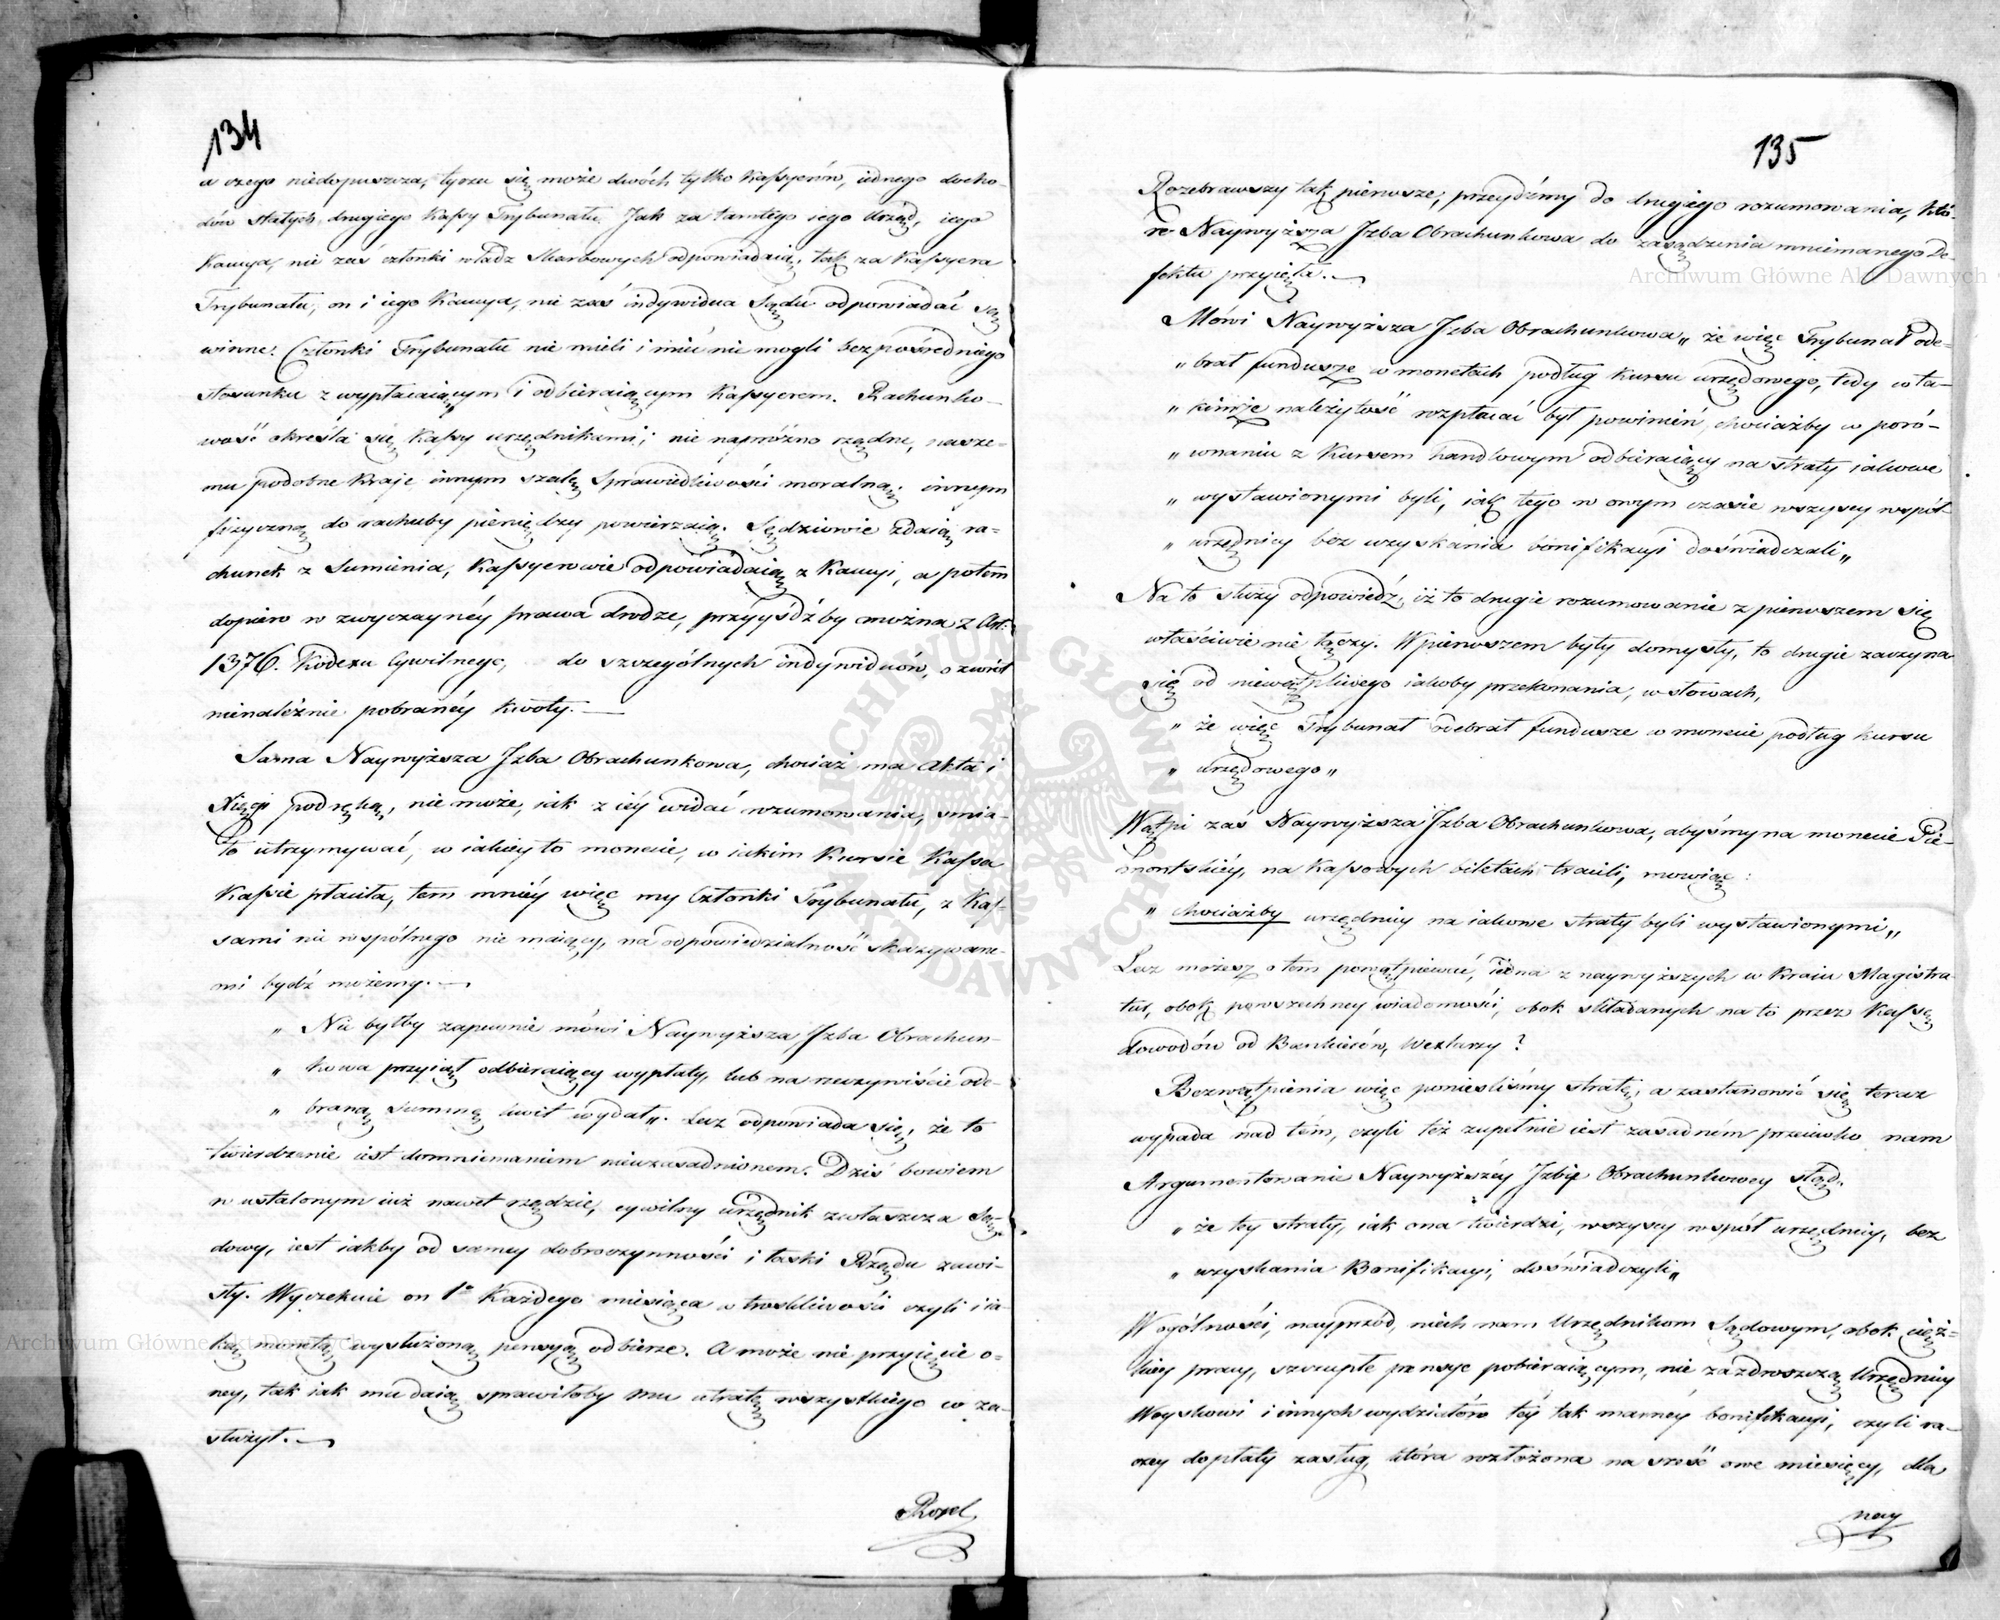 134
a czego niedopuszcza, tyczu się może dwóch tylko Kassyerów, iednego docho-
dów stałych, drugiego Kassy Trybunału. Jak za tamtego iego Urząd, iego
Kaucya, nie zaś członki władz Skarbowych odpowiadaią, tak za Kassyera
Trybunału, on i iego Kaucya, nie zaś indywidua Sądu odpowiadać są
winne. Członki Trybunału nie mieli i mieć nie mogli bezpośredniego
stosunku z wypłacaiącym i odbieraiącym Kassyerem. Rachunko-
wość określa się Kassy urzędnikami; nie napróżno rządne, nasze-
mu podobne Kraje innym szalę Sprawiedliwości moralną, innym
fizyczną do rachuby pieniędzy powierzaią. Sędziowie zdaią ra-
chunek z Sumienia, Kassyerowie odpowiadaią z Kaucyi, a potem
dopiero w zwyczaynéy prawa drodze, przyyśdź by można z Art:
1376. Kodexu Cywilnego, do szczególnych indywiduów, o zwrót
nienależnie pobranéy kwoty. —
Sama Naywyższa Jzba Obrachunkowa, chociaż ma Akta i
Xięgi pod ręką, nie może, iak z iéy widać rozumowania, smia-
ło utrzymywać, w iakiey to monecie, w iakim Kursie Kassa
Kassie płaciła, tem mniéy więc my Członki Trybunału, z Kas-
sami nic wspólnego nie maiący, na odpowiedzialność skazywane-
mi bydź możemy. —
„ Nie byłby zapewnie mówi Naywyższa Jzba Obrachun-
„ kowa przyiął odbieraiący wypłaty, lub na rzeczywiście ode-
„ braną summę kwit wydał„. Lecz odpowiada się, że to
twierdzenie iest domniemaniem nieuzasadnionem. Dziś bowiem
w ustalonym iuż nawet rządzie, cywilny urzędnik zwłaszcza Są-
dowy, iest iakby od samey dobroczynności i łaski Rządu zawi-
sły. Wyczekuie on 1o Każdego miesiąca w troskliwości czyli i ia-
ką monetą wysłużoną pensyą odbierze. A może nie przyięcie o-
ney, tak iak mu daią sprawiłoby mu utratę wszystkiego co za-
służył. —
Rozel
135
Rozebrawszy tak pierwsze, przeydźmy do drugiego rozumowania, któ-
re Naywyższa Jzba Obrachunkowa do zasądzenia mniemanego De-
fektu przyięła. —
Mówi Naywyższa Jzba Obrachunkowa„ że więc Trybunał ode-
„ brał fundusze w monetach podług kursu urzędowego, tedy w ta-
„ kimże należytość rozpłacać był powinien, chociażby w poró-
„ wnaniu z Kursem handlowym odbieraiący na straty iakowe
„ wystawionymi byli, iak tego w owym czasie wszyscy współ-
„ urzędnicy bez uzyskania bonifikacyi doświadczali„
Na to służy odpowiedź, iż to drugie rozumowanie z pierwszem się
właściwie nie łączy. W pierwszem były domysły, to drugie zaczyna
się od niewątpliwego iakoby przekonania, w słowach,
„ że więc Trybunał odebrał fundusze w monecie podług kursu
„ urzędowego„
Wątpi zaś Naywyższa Jzba Obrachunkowa, abyśmy na monecie Pie-
montskiéy, na Kassowych biletach tracili, mowiąc:
„ chociażby urzędnicy na iakowe straty byli wystawionymi„
Lecz możesz o tem powątpiewać, iedna z naywyższych w Kraiu Magistra-
tur, obok powszechney wiadomości, obok składanych na to przez Kassę
dowodów od Bankierów, Wexlarzy?
Bezwątpienia więc ponieśliśmy stratę, a zastanowić się teraz
wypada nad tém, czyli też zupełnie iest zasadném przeciwko nam
Argumentowanie Naywyższéy Jzby Obrachunkowey stąd.
„ że tey straty, iak ona twierdzi, wszyscy współ urzędnicy, bez
„ uzyskania Bonifikacyi, doświadczyli„
W ogólności, nayprzód, niech nam Urzędnikom Sądowym, obok cięż-
kiey pracy, szczupłe pensye pobieraiącym, nie zazdroszczą Urzędnicy
Woyskowi i innych wydziałów téy tak marnéy bonifikacyi, czyli ra-
czey dopłaty zasług, która rozłożona na sześć owe miesięcy, dla
nay